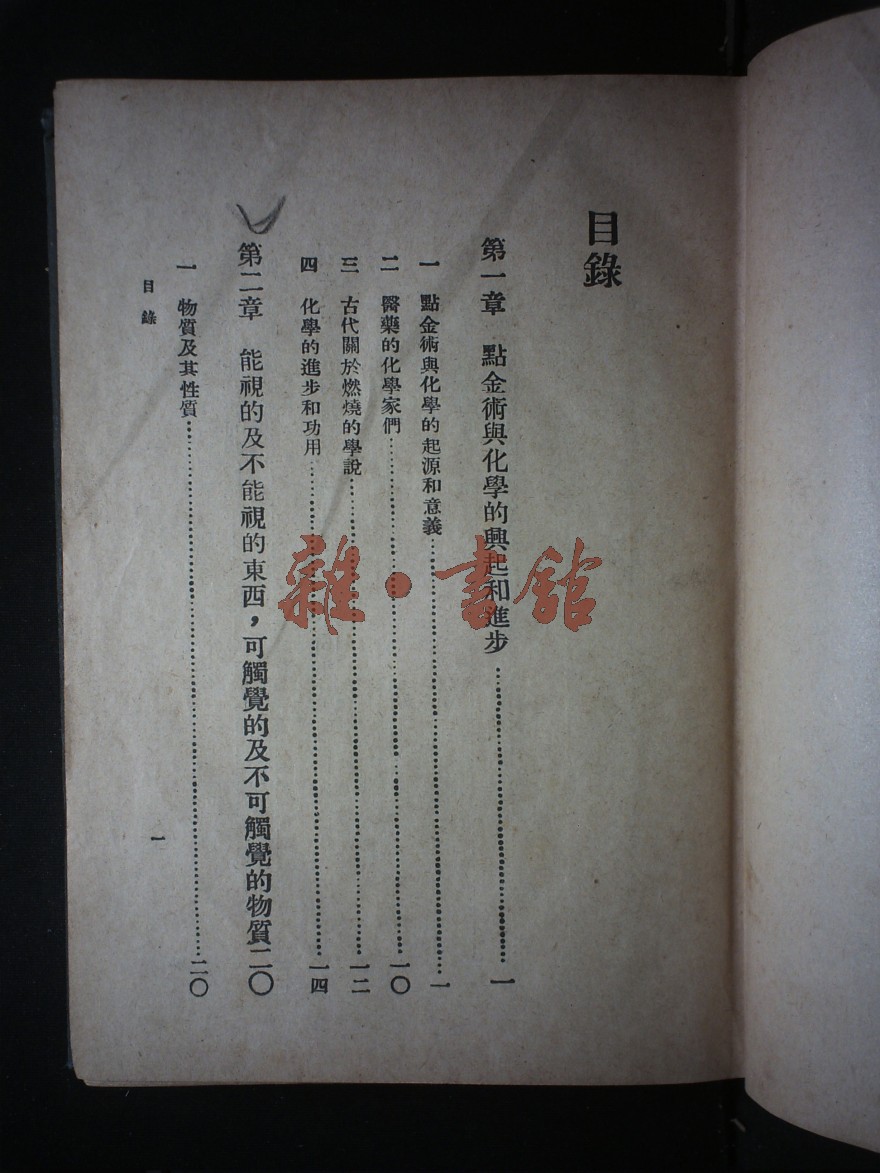 目錄
第一章　點金術與化學的興起和進步⋯⋯⋯⋯一
一　點金術與化學的起源和意義⋯⋯⋯⋯一
二　醫藥的化學家們⋯⋯⋯⋯一〇
三　古代關於燃燒的學說⋯⋯⋯⋯一二
四　化學的進步和功用⋯⋯⋯⋯一四
第二章　能視的及不能視的東西，可觸覺的及不可觸覺的物質二〇
一　物質及其性質⋯⋯⋯⋯二〇
目錄　一
雜·書館